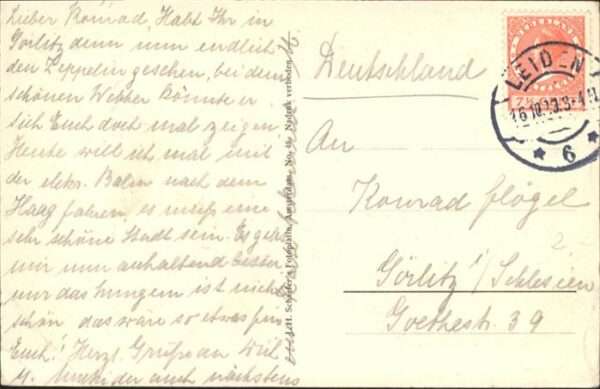 Lieber Konrad, Habt Ihr in
Görlitz denn nun endlich
den Zeppelin gesehen, bei dem
schönen Wetter könnte er
sich Euch doch mal zeigen.
Heute will ich mal mit
der elektr. Bahn nach dem
Haag fahren, es muß eine
sehr schöne Stadt sein. Es geht
mir nun anhaltend besser
nur das hungern ist nicht
schön das wäre so etwas für
Euch! Herzl. Grüße an
der auch nächstens
Deutschland
An
Konrad Flögel
Görlitz / Schlesien
Goethestr. 39
LEIDEN
6